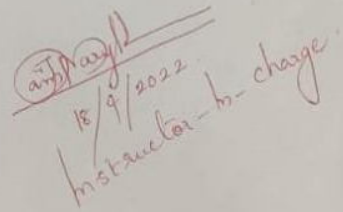 18/9/2022
Instructor-In-charge.